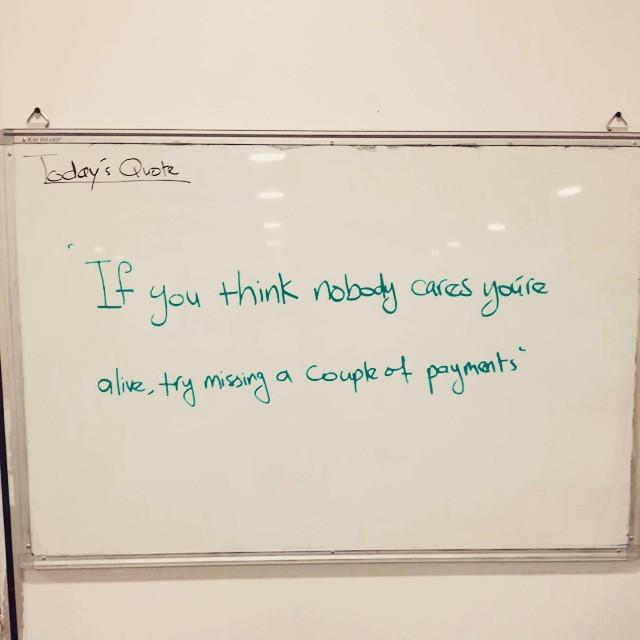 Today's Quote
"If you think nobody cares you're
alive, try missing a couple of payments"